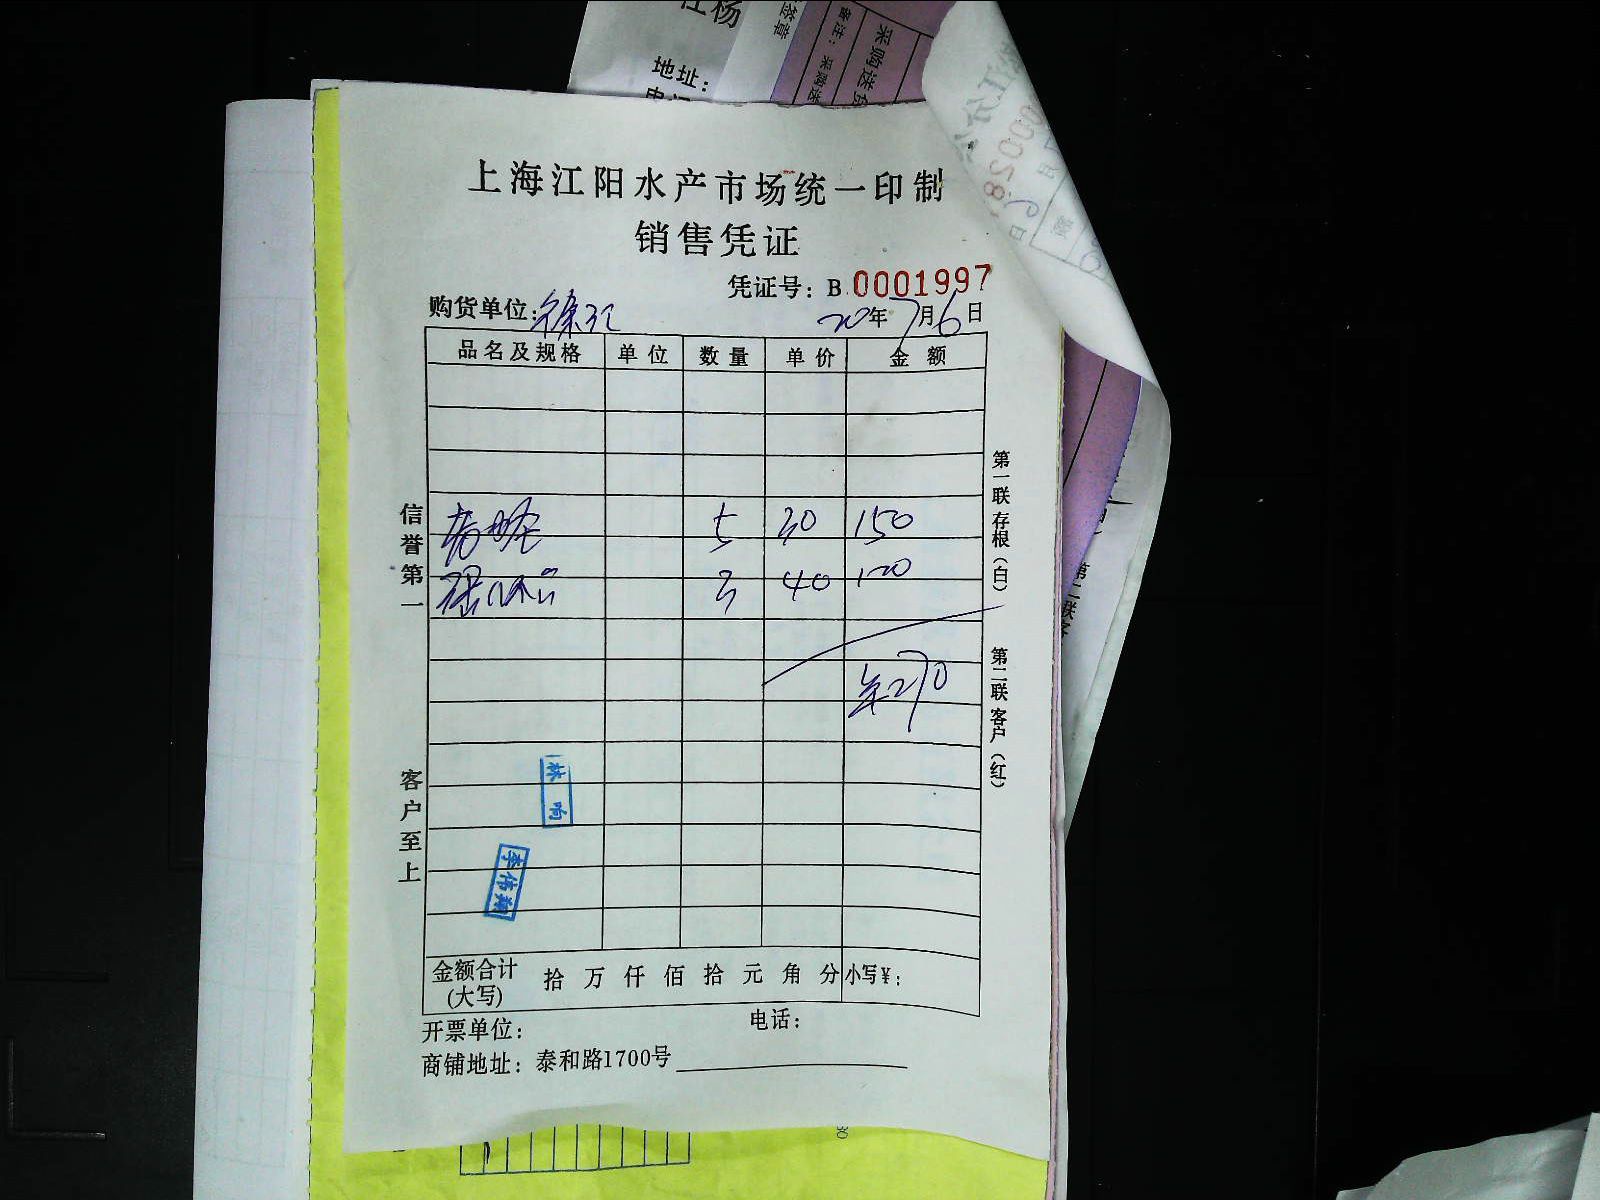 地址：
采购送
备注：采购送
上海江阳水产市场统一印制
销售凭证
凭证号：B 0001997
购货单位：徐
20年7月6日
品名及规格 单位 数量 单价 金额
5 30 150
3 40 120
270
林响
李伟翔
金额合计(大写) 拾 万 仟 佰 拾 元 角 分 小写¥：
开票单位： 电话：
商铺地址：泰和路1700号
信誉第一
客户至上
第一联存根（白）
第二联客户（红）